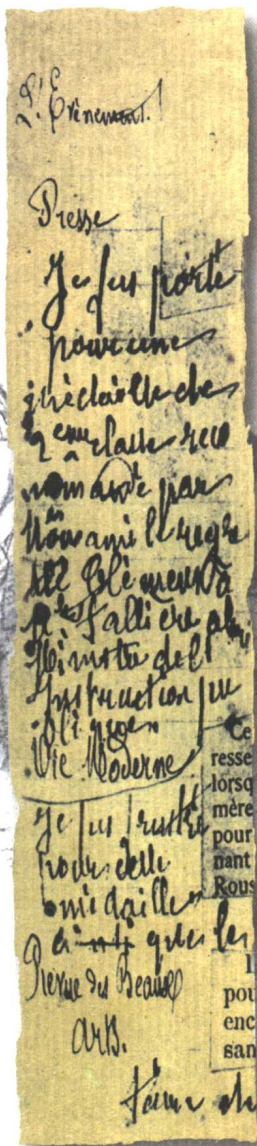 L'Evènement.
Presse
Je fus porté
pour une
médaille de
2eme classe reco
mandé par
mon ami le regre
tté Clément à
Mr Fallière alors
Ministre de l'
Instruction pu
blique
Vie Moderne
Je fus frustré
pour cette
médaille
que les
Revue des Beaux
Arts.
J'aime
Ce
resse
lorsq
mère
pour
nant
Rous
pou
enc
san